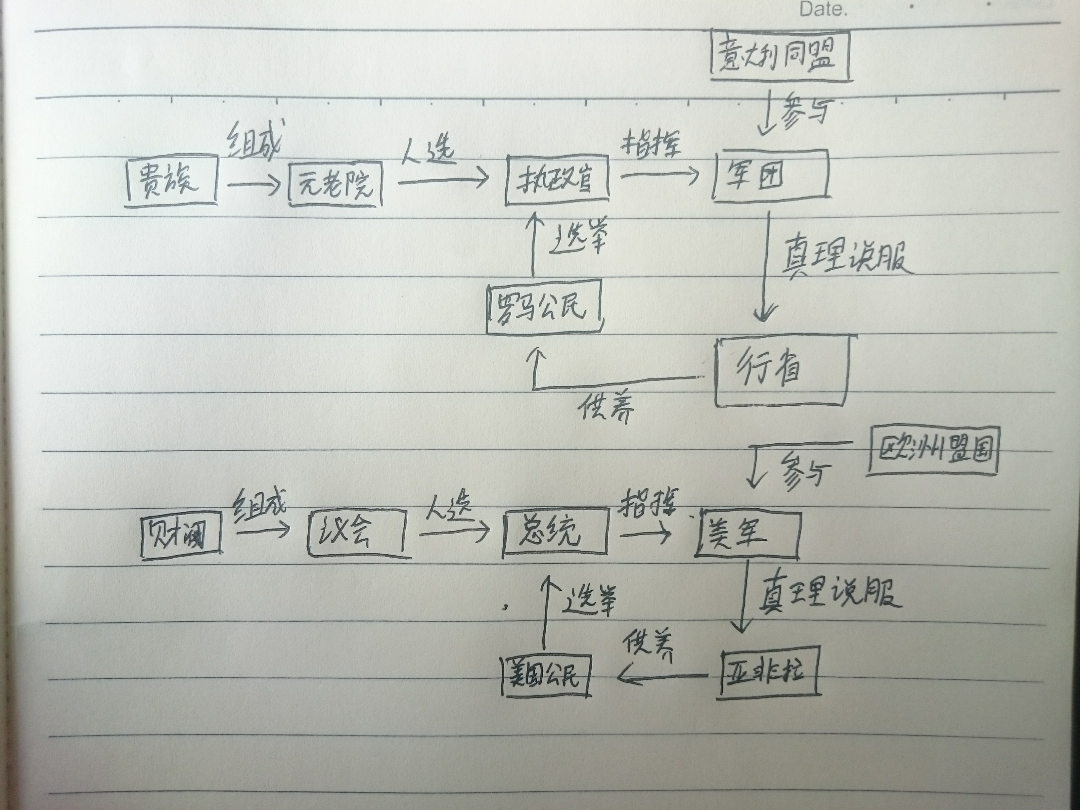 Date.
意大利同盟
参与
组成 人选 指挥
贵族 元老院 执政官 军团
选举 真理说服
罗马公民
行省
供养
欧洲盟国
参与
组成 人选 指挥
财阀 议会 总统 美军
选举 真理说服
供养
美国公民 亚非拉